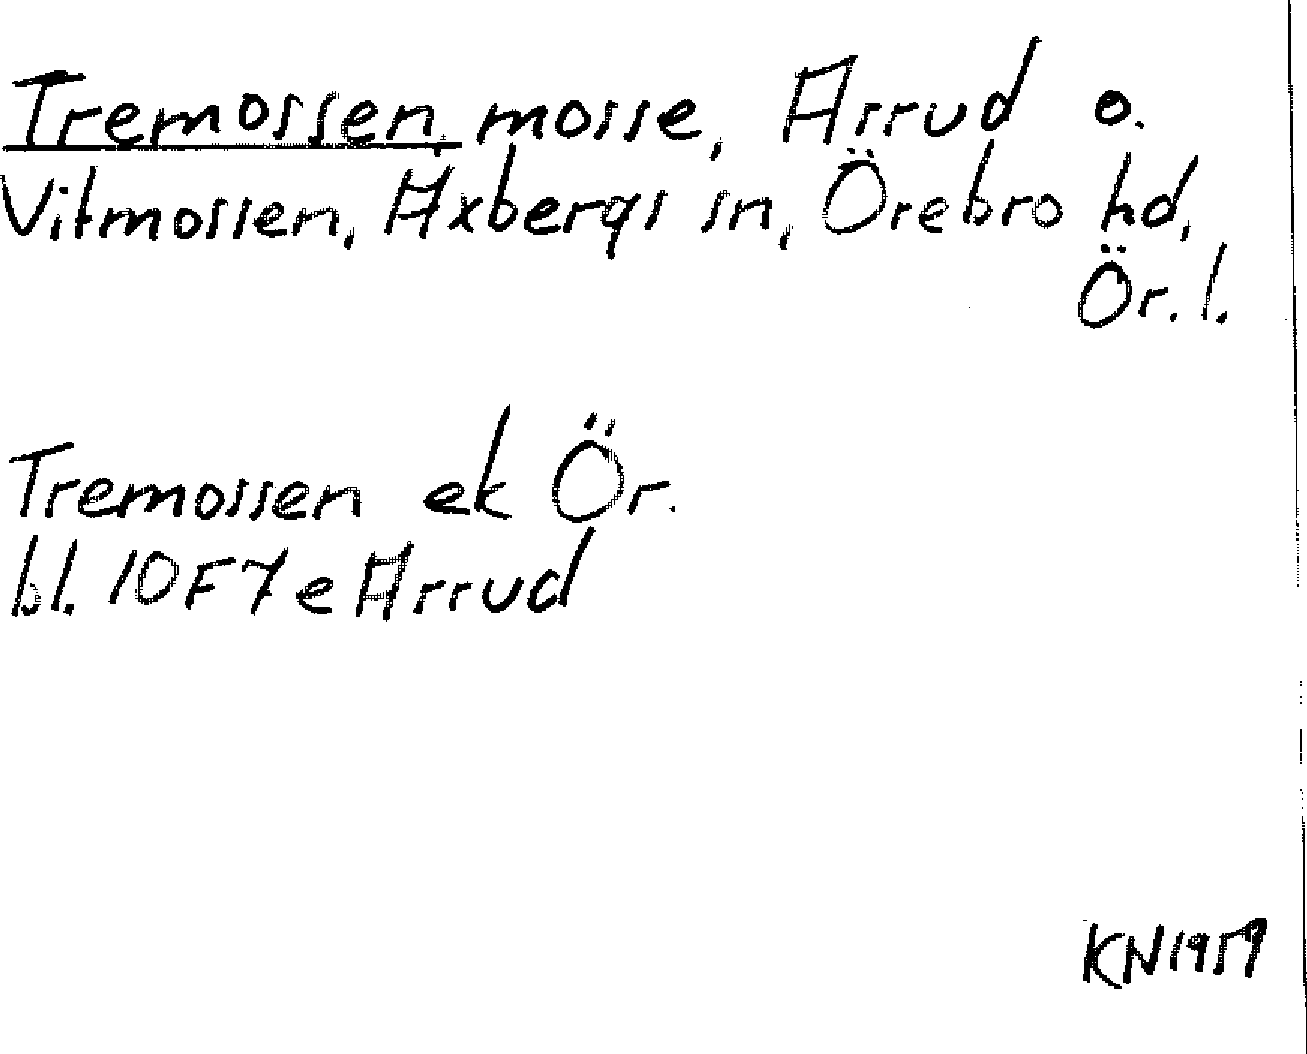 Tremossen, mosse, Arrud o.
Vitmossen, Axbergs sn, Örebro hd,
Ör. l.
Tremossen ek Ör.
bl. 10F7e Arrud
KN 1959